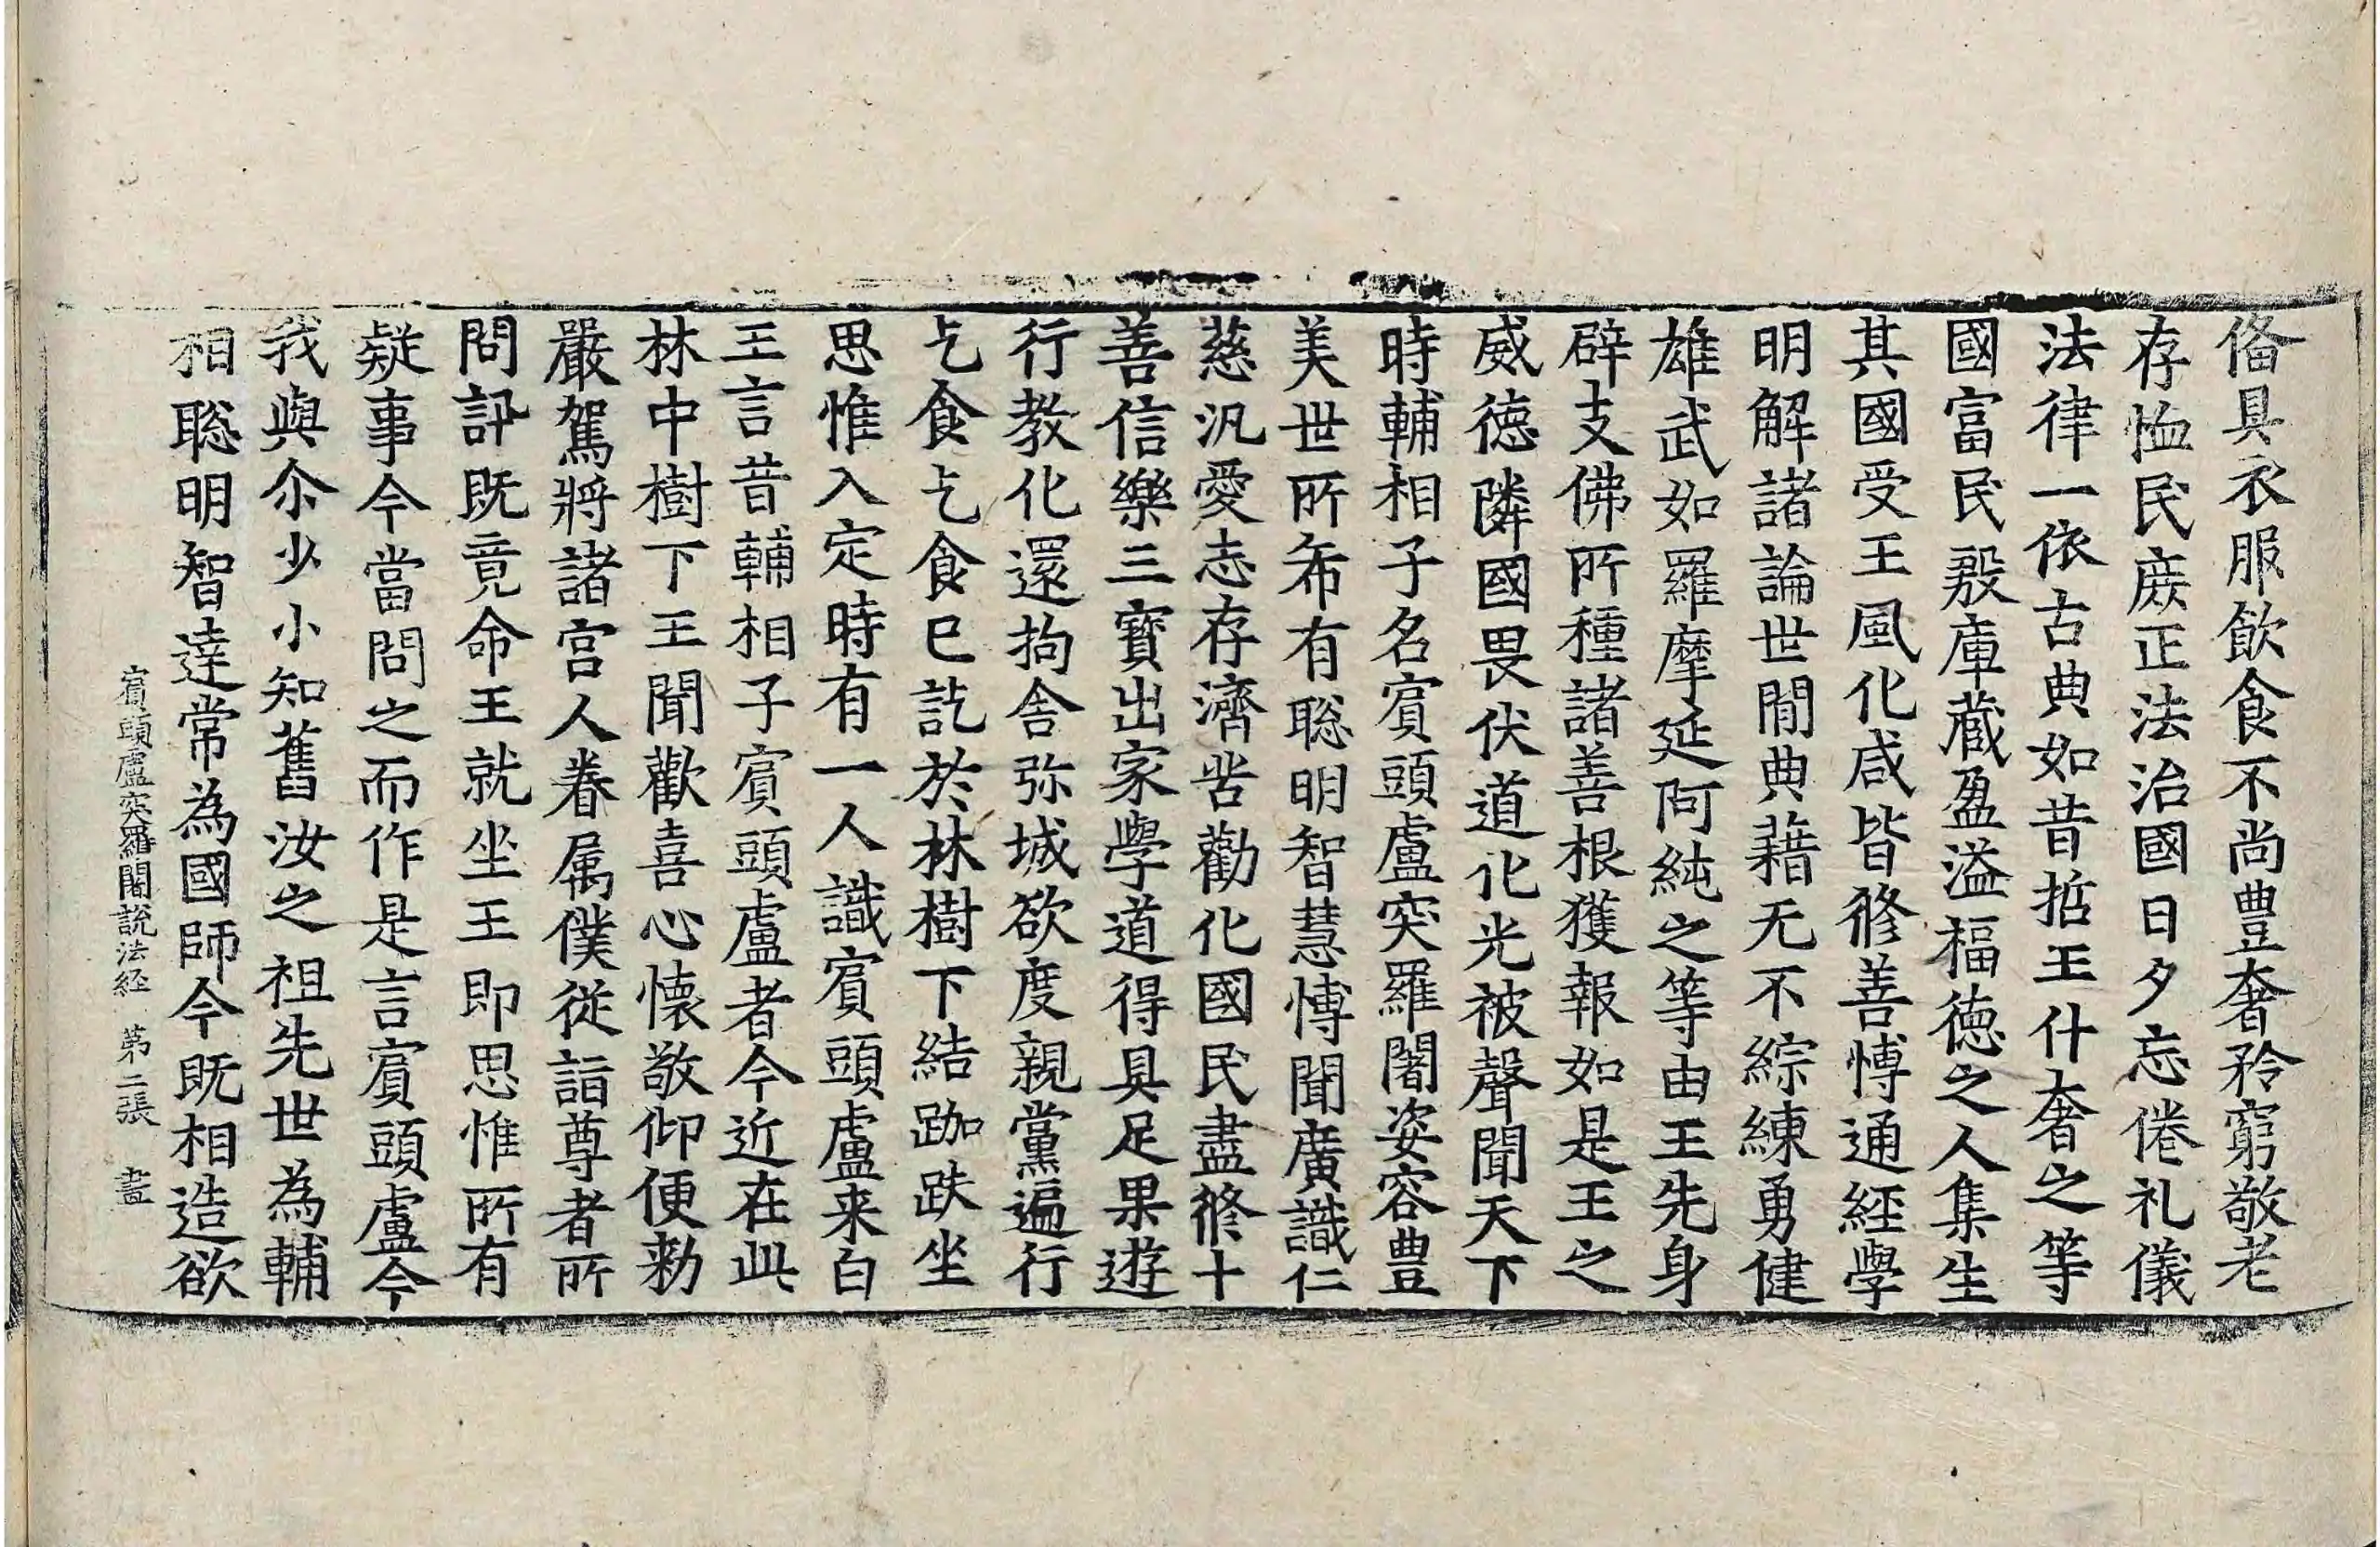 俻具衣服飲食不尚豊奢矜窮敬老
存恤民庶正法治國日夕忘倦礼儀
法律一依古典如昔哲王什奢之等
國富民殷庫藏盈溢福徳之人集生
其國受王風化咸皆修善愽通経學
明解諸論世間典藉无不綜練勇健
雄武如羅摩延阿純之等由王先身
辟支佛所種諸善根獲報如是王之
威徳隣國畏伏道化光被聲聞天下
時輔相子名賔頭盧突羅闍姿容豊
美世所希有聡明智慧愽聞廣識仁
慈汎愛志存濟苦勸化國民盡修十
善信樂三寶出家學道得具足果遊
行教化還拘舍弥城欲度親黨遍行
乞食乞食已訖於林樹下結跏趺坐
思惟入定時有一人識賔頭盧来白
王言昔輔相子賔頭盧者今近在此
林中樹下王聞歡喜心懐敬仰便勑
嚴駕將諸宫人眷属僕従詣尊者所
問訊既竟命王就坐王即思惟所有
疑事今當問之而作是言賔頭盧今
我與尒少小知舊汝之祖先世為輔
相聡明智達常為國師今既相造欲
賔頭盧突羅闍說法経 第二張 晝